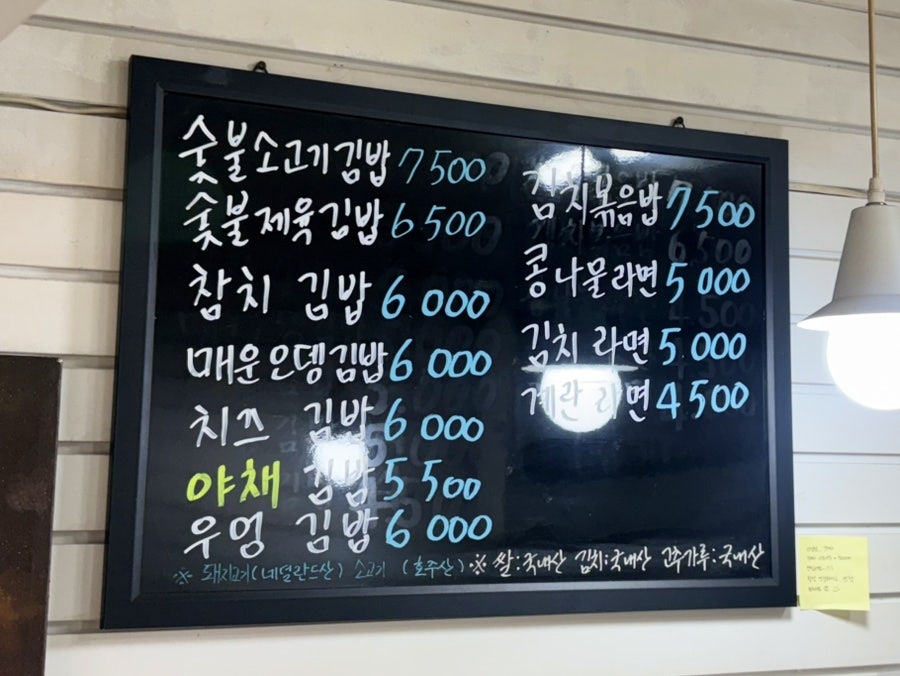 숯불소고기김밥 7500
숯불제육김밥 6500
참치 김밥 6000
매운오뎅김밥 6000
치즈 김밥 6000
야채 김밥 5500
우엉 김밥 6000
※ 돼지고기(네덜란드산) 소고기 (호주산)
김치볶음밥 7500
콩나물라면 5000
김치 라면 5000
계란 라면 4500
※ 쌀:국내산 김치:국내산 고추가루:국내산